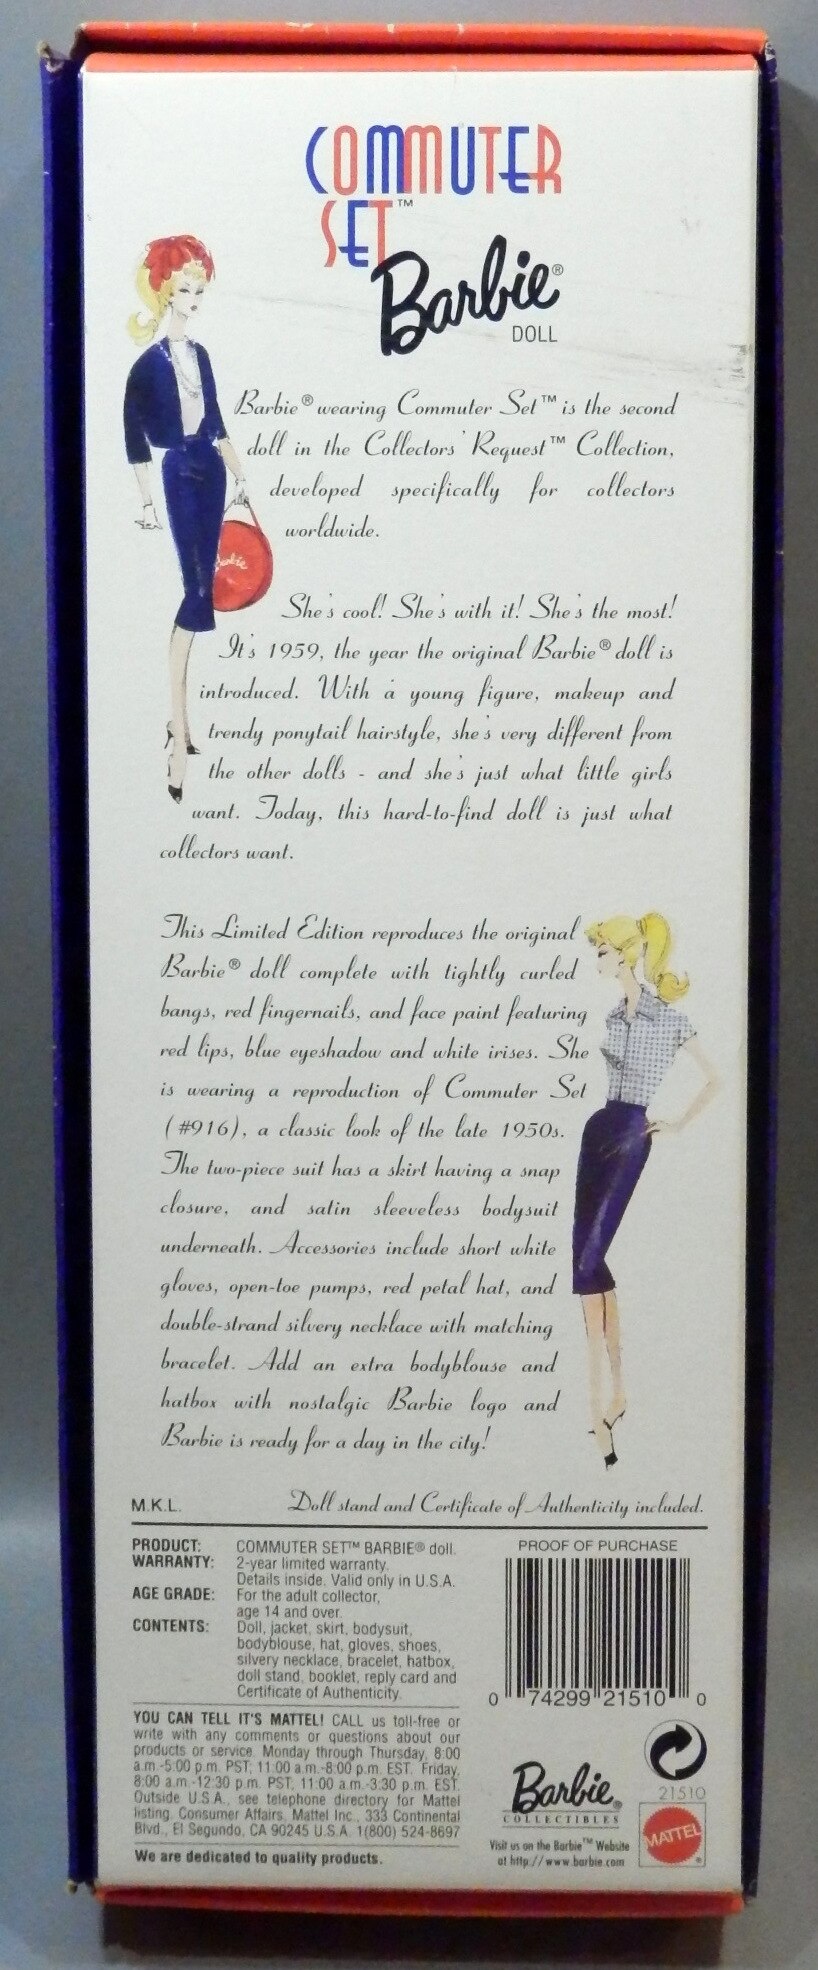 COMMUTER
SET™
Barbie®
DOLL
Barbie® wearing Commuter Set™ is the second
doll in the Collectors' Request™ Collection,
developed specifically for collectors
worldwide.
Barbie
She's cool! She's with it! She's the most!
It's 1959, the year the original Barbie® doll is
introduced. With a young figure, makeup and
trendy ponytail hairstyle, she's very different from
the other dolls - and she's just what little girls
want. Today, this hard-to-find doll is just what
collectors want.
This Limited Edition reproduces the original
Barbie® doll complete with tightly curled
bangs, red fingernails, and face paint featuring
red lips, blue eyeshadow and white irises. She
is wearing a reproduction of Commuter Set
(#916), a classic look of the late 1950s.
The two-piece suit has a skirt having a snap
closure, and satin sleeveless bodysuit
underneath. Accessories include short white
gloves, open-toe pumps, red petal hat, and
double-strand silvery necklace with matching
bracelet. Add an extra bodyblouse and
hatbox with nostalgic Barbie logo and
Barbie is ready for a day in the city!
M.K.L.
Doll stand and Certificate of Authenticity included.
PRODUCT: COMMUTER SET™ BARBIE® doll.
WARRANTY: 2-year limited warranty.
Details inside. Valid only in U.S.A.
AGE GRADE: For the adult collector,
age 14 and over.
CONTENTS: Doll, jacket, skirt, bodysuit,
bodyblouse, hat, gloves, shoes,
silvery necklace, bracelet, hatbox,
doll stand, booklet, reply card and
Certificate of Authenticity.
YOU CAN TELL IT'S MATTEL! CALL us toll-free or
write with any comments or questions about our
products or service. Monday through Thursday, 8:00
a.m.-5:00 p.m. PST, 11:00 a.m.-8:00 p.m. EST. Friday,
8:00 a.m.-12:30 p.m. PST, 11:00 a.m.-3:30 p.m. EST.
Outside U.S.A., see telephone directory for Mattel
listing. Consumer Affairs, Mattel Inc., 333 Continental
Blvd., El Segundo, CA 90245 U.S.A. 1(800) 524-8697
We are dedicated to quality products.
PROOF OF PURCHASE
0 74299 21510 0
Barbie®
COLLECTIBLES
Visit us on the Barbie™ Website
at http://www.barbie.com
21510
MATTEL®